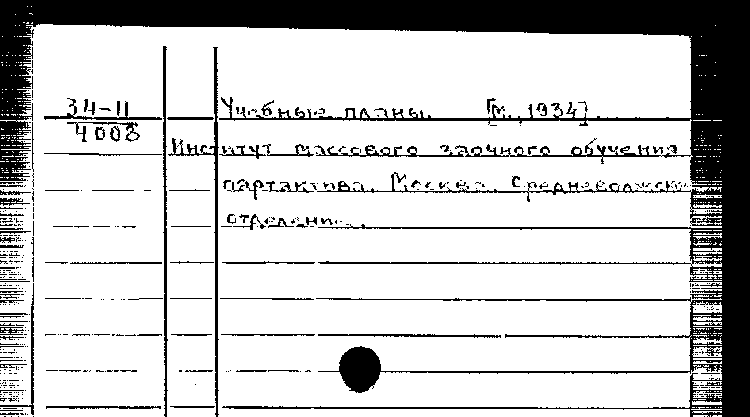 34-11 Учебные планы. [М., 1934].
4008
Институт массового заочного обучения
партактива. Москва. Средневолжск
отделение.